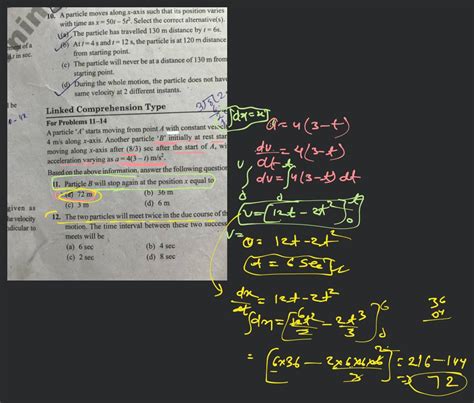 10. A particle moves along x-axis such that its position varies
with time as x = 50t – 5t². Select the correct alternative(s).
(a) The particle has travelled 130 m distance by t = 6s.
(b) At t = 4 s and t = 12 s, the particle is at 120 m distance
from starting point.
(c) The particle will never be at a distance of 130 m from
starting point.
(d) During the whole motion, the particle does not have
same velocity at 2 different instants.
Linked Comprehension Type
For Problems 11–14
A particle 'A' starts moving from point A with constant veloc
4 m/s along x-axis. Another particle 'B' initially at rest star
moving along x-axis after (8/3) sec after the start of A, wi
acceleration varying as a = 4(3 – t) m/s².
Based on the above information, answer the following question
11. Particle B will stop again at the position x equal to
(a) 72 m (b) 36 m
(c) 3 m (d) 6 m
12. The two particles will meet twice in the due course of th
motion. The time interval between these two succes
meets will be
(a) 6 sec (b) 4 sec
(c) 2 sec (d) 8 sec
ent of a
t in sec.
l be
given as
he velocity
ndicular to
a = 4(3-t)
dv/dt = 4(3-t)
∫dv = ∫4(3-t) dt
v = (12t - 2t²)
v =
0 = 12t - 2t²
t = 6 sec
dx/dt = 12t - 2t²
36
= 216 - 144
72